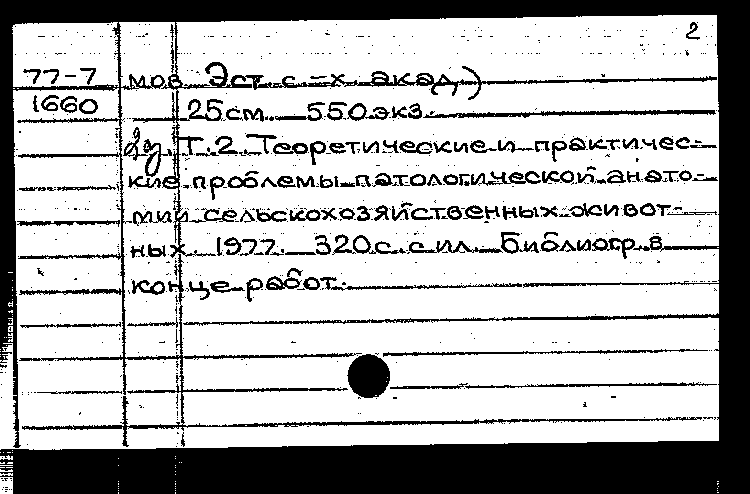 2
77-7 мов. Эст. с.-х. акад.)
1660 25 см. 550 экз.
Т. 2. Теоретические и практичес-
кие проблемы патологической анато-
мии сельскохозяйственных живот-
ных. 1977. 320 с. с ил. Библиогр. в
конце работ.